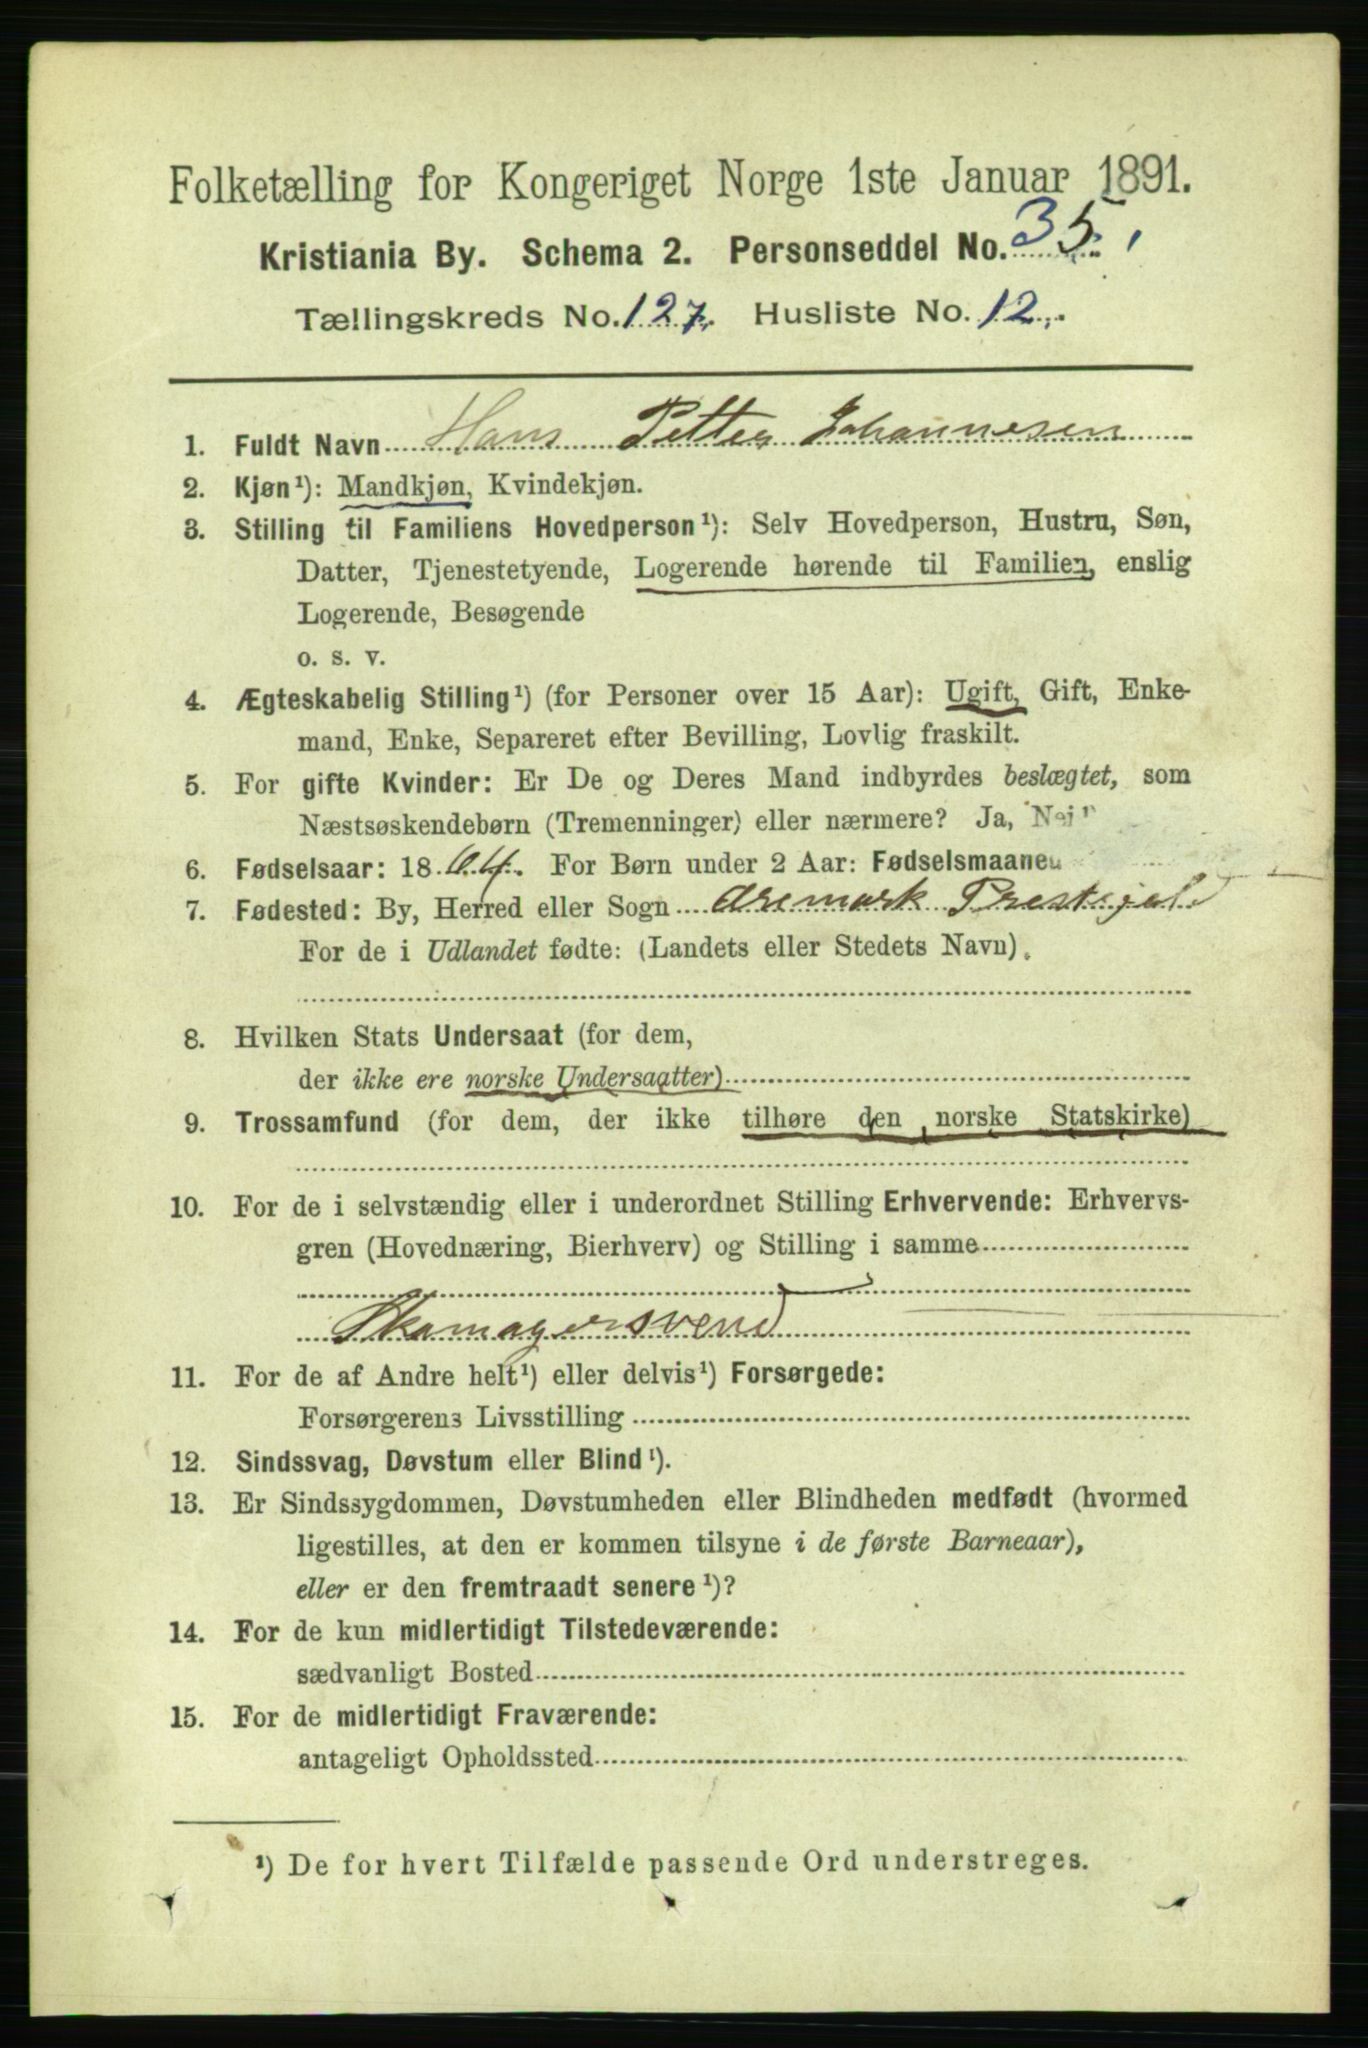 Folketælling for Kongeriget Norge 1ste Januar 1891.
Kristiania By. Schema 2. Personseddel No. 35.
Tællingskreds No. 127. Husliste No. 12.
1. Fuldt Navn Hans Petter Johannesen
2. Kjøn¹): Mandkjøn, Kvindekjøn.
3. Stilling til Familiens Hovedperson¹): Selv Hovedperson, Hustru, Søn,
Datter, Tjenestetyende, Logerende hørende til Familien, enslig
Logerende, Besøgende
o. s. v.
4. Ægteskabelig Stilling¹) (for Personer over 15 Aar): Ugift, Gift, Enke-
mand, Enke, Separeret efter Bevilling, Lovlig fraskilt.
5. For gifte Kvinder: Er De og Deres Mand indbyrdes beslægtet, som
Næstsøskendebørn (Tremenninger) eller nærmere? Ja, Nei¹
6. Fødselsaar: 1864. For Børn under 2 Aar: Fødselsmaaned
7. Fødested: By, Herred eller Sogn Aremark Prestegjeld
For de i Udlandet fødte: (Landets eller Stedets Navn).
8. Hvilken Stats Undersaat (for dem,
der ikke ere norske Undersaatter)
9. Trossamfund (for dem, der ikke tilhøre den norske Statskirke)
10. For de i selvstændig eller i underordnet Stilling Erhvervende: Erhvervs-
gren (Hovednæring, Bierhverv) og Stilling i samme
Skomagersvend
11. For de af Andre helt¹) eller delvis¹) Forsørgede:
Forsørgerens Livsstilling
12. Sindssvag, Døvstum eller Blind¹).
13. Er Sindssygdommen, Døvstumheden eller Blindheden medfødt (hvormed
ligestilles, at den er kommen tilsyne i de første Barneaar),
eller er den fremtraadt senere¹)?
14. For de kun midlertidigt Tilstedeværende:
sædvanligt Bosted
15. For de midlertidigt Fraværende:
antageligt Opholdssted
¹) De for hvert Tilfælde passende Ord understreges.